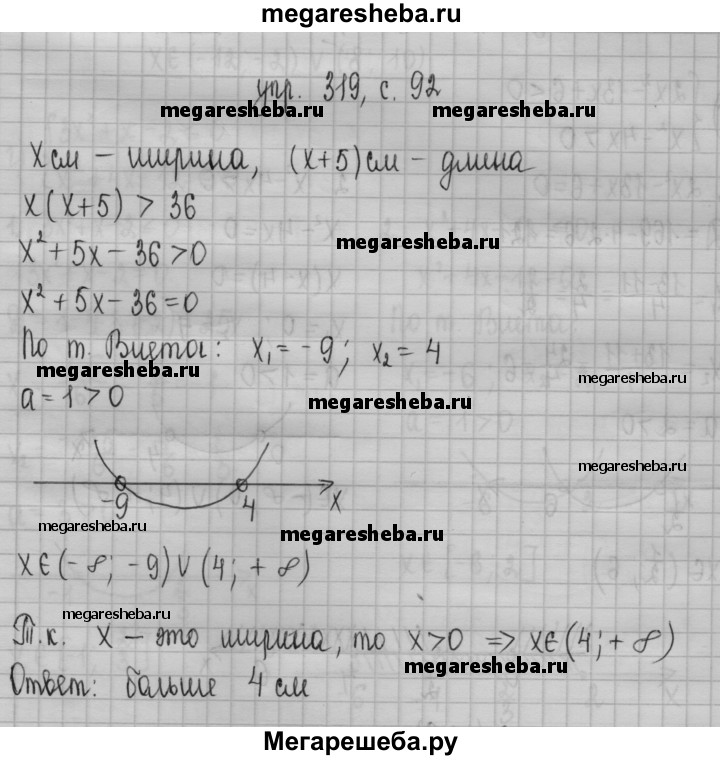 megaresheba.ru
упр. 319, с. 92
megaresheba.ru megaresheba.ru
X см – ширина, (x+5) см – длина
x(x+5) > 36
megaresheba.ru
x² + 5x – 36 > 0
x² + 5x – 36 = 0
По т. Виета: x₁ = –9; x₂ = 4
megaresheba.ru megaresheba.ru
a = 1 > 0 megaresheba.ru
megaresheba.ru
–9 4 x
megaresheba.ru megaresheba.ru
x ∈ (–∞; –9) ∪ (4; +∞)
megaresheba.ru
Т.к. x – это ширина, то x > 0 => x ∈ (4; +∞)
megaresheba.ru
Ответ: больше 4 см
Мегарешеба.ру